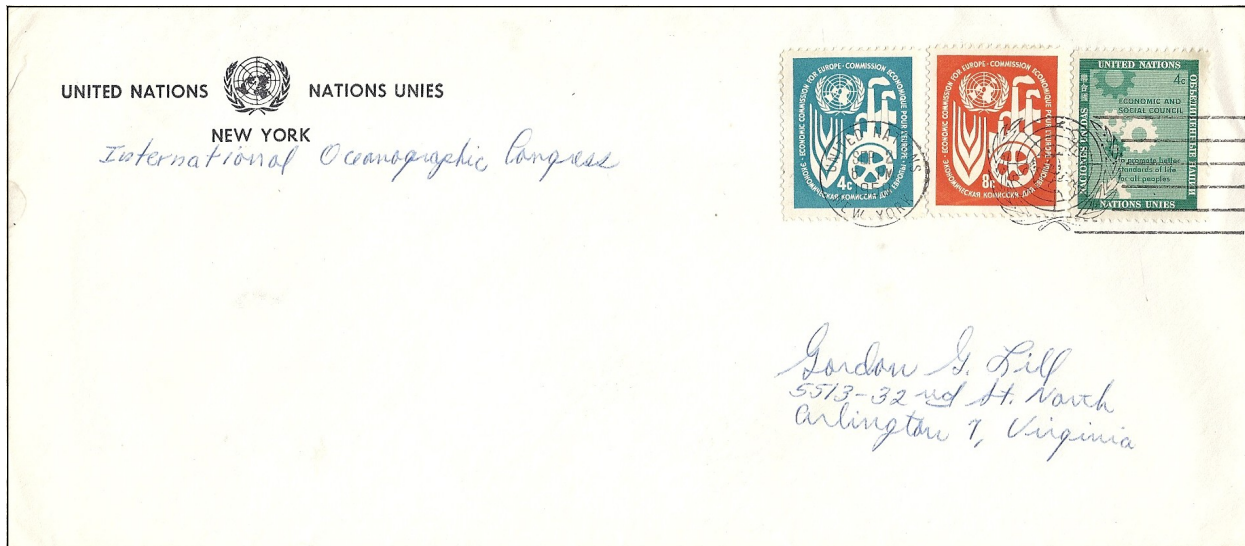 UNITED NATIONS NATIONS UNIES
NEW YORK
International Oceanographic Congress
ECONOMIC COMMISSION FOR EUROPE · COMMISSION ECONOMIQUE POUR L'EUROPE · ЭКОНОМИЧЕСКАЯ КОМИССИЯ ДЛЯ ЕВРОПЫ
4c
ECONOMIC COMMISSION FOR EUROPE · COMMISSION ECONOMIQUE POUR L'EUROPE · ЭКОНОМИЧЕСКАЯ КОМИССИЯ ДЛЯ ЕВРОПЫ
8c
UNITED NATIONS
4c
ECONOMIC AND
SOCIAL COUNCIL
to promote better
standards of life
for all peoples
NATIONS UNIES
NACIONES UNIDAS
ОБЪЕДИНЕННЫЕ НАЦИИ
UNITED NATIONS
NEW YORK
Gordon G. Lill
5513-32nd St. North
Arlington 7, Virginia